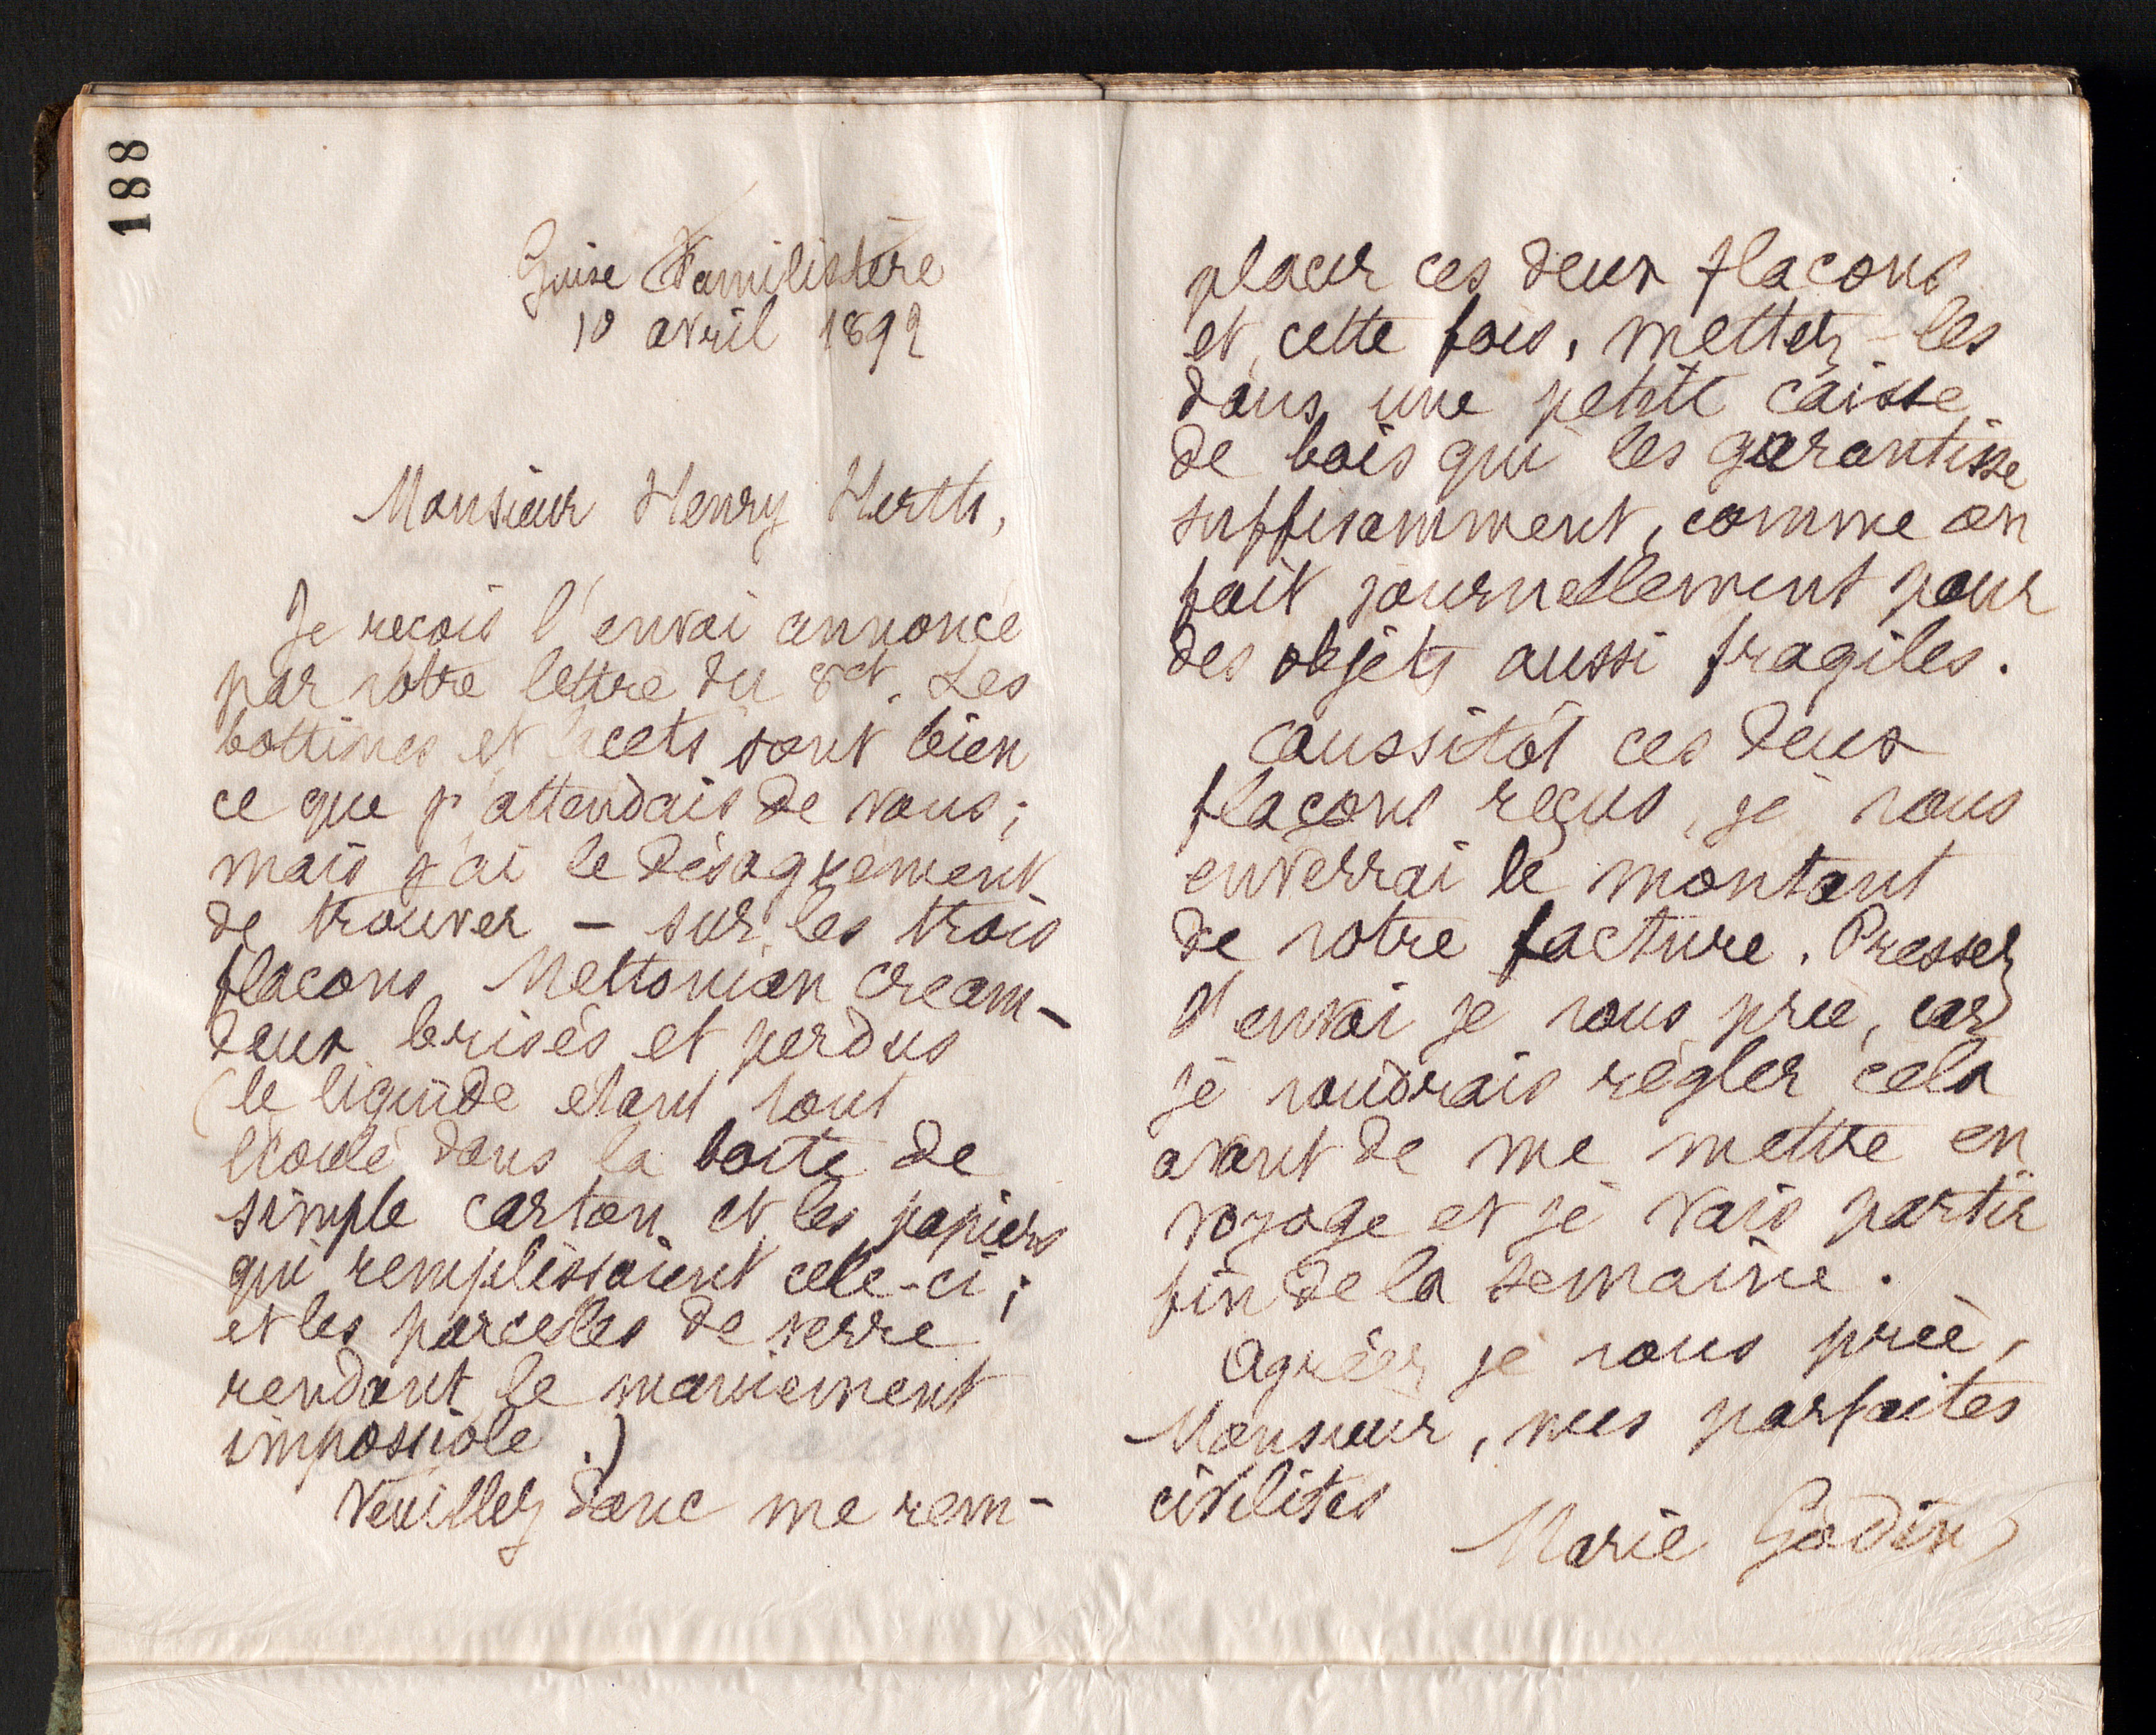 188
Guise Familistère
10 avril 1892
Monsieur Henry Herth,
Je reçois l'envoi annoncé
par votre lettre du 8 ct. Les
bottines et lacets sont bien
ce que j'attendais de vous ;
mais j'ai le désagrément
de trouver – sur les trois
flacons Meltonian Cream –
deux brisés et perdus
(le liquide étant tout
écoulé dans la boite de
simple carton et les papiers
qui remplissaient celle-ci ;
et les parcelles de verre
rendant le maniement
impossible.)
Veuillez donc me rem-
placer ces deux flacons
et, cette fois, mettez-les
dans une petite caisse
de bois qui les garantisse
suffisamment, comme on
fait journellement pour
des objets aussi fragiles.
Aussitôt ces deux
flacons reçus, je vous
enverrai le montant
de votre facture. Pressez
l'envoi je vous prie, car
je voudrais régler cela
avant de me mettre en
voyage et je vais partir
fin de la semaine.
Agréez je vous prie,
Monsieur, mes parfaites
civilités
Marie Godin